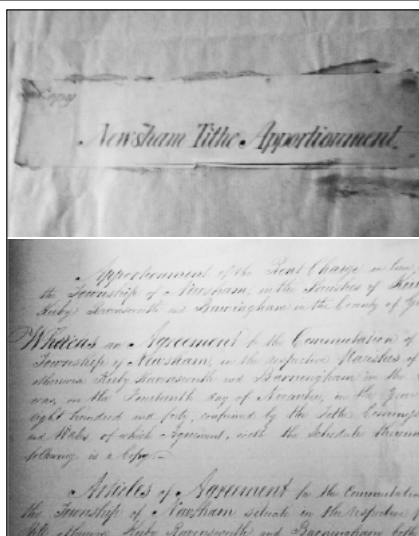 Copy
Newsham Tithe Apportionment.
Apportionment of the Rent Charge in lieu
the Township of Newsham, in the Parishes of
Kirby Ravensworth and Barningham in the County of
Whereas an Agreement for the Commutation of
Township of Newsham, in the respective Parishes of
otherwise Kirby Ravensworth and Barningham in the
was, on the day of November, in the Year
eight hundred and forty, confirmed by the Tithe
and Wales, of which Agreement, with the Schedule
following is a Copy.
Articles of Agreement for the Commutation
the Township of Newsham situate in the respective
Kirby Ravensworth and Barningham both